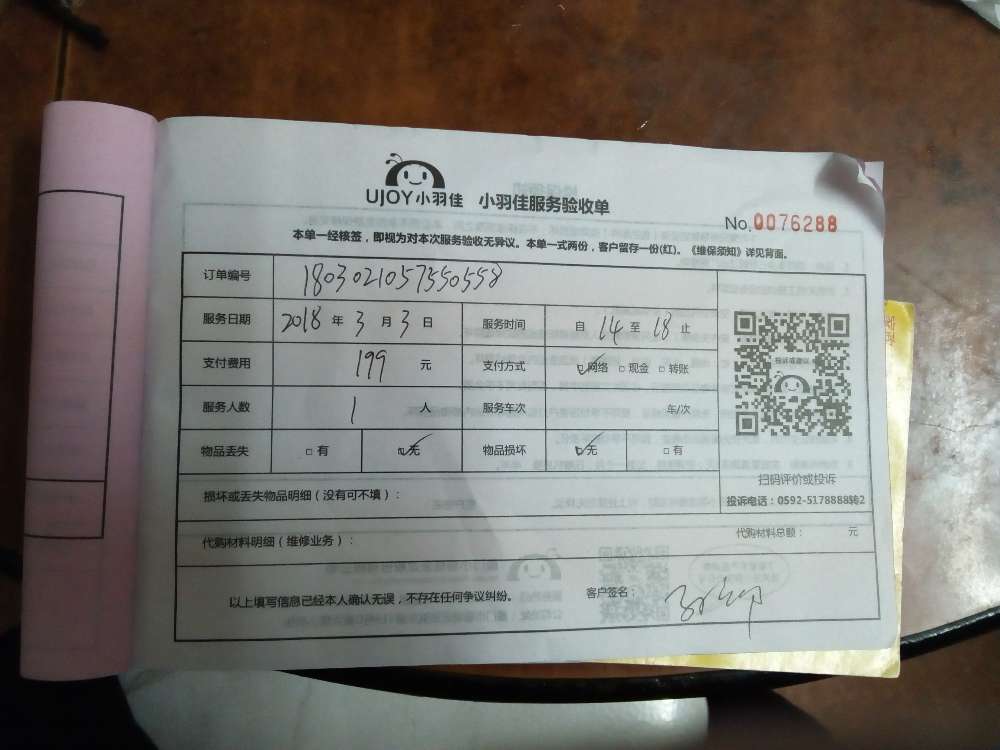 UJOY小羽佳 小羽佳服务验收单
No.0076288
本单一经核签，即视为对本次服务验收无异议。本单一式两份，客户留存一份(红)。《维保须知》详见背面。
订单编号 1803021057550558
服务日期 2018年3月3日 服务时间 自14至18止
支付费用 199元 支付方式 ☑网络 □现金 □转账
服务人数 1人 服务车次 车/次
物品丢失 □有 ☑无 物品损坏 ☑无 □有
投诉或建议
扫码评价或投诉
投诉电话：0592-5178888转2
损坏或丢失物品明细（没有可不填）：
代购材料明细（维修业务）： 代购材料总额： 元
以上填写信息已经本人确认无误，不存在任何争议纠纷。 客户签名：